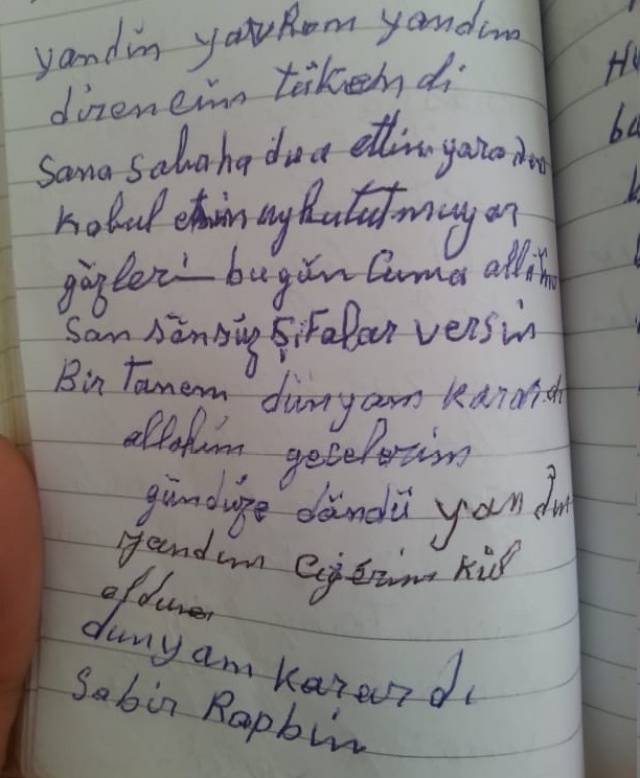 yandım yavrum yandım
direncim tükendi
Sana sabaha dua ettim yaradan
Kabul etsin uyku tutmuyor
gözleri bugün Cuma allahım
San sönsüz Şifalar versin
Bir Tanem dünyam karardı
allahım geselerim
gündüze döndü yandım
yandım Ciğerim kül
oldum
dunyam karardı
Sabir Rapbim
Hu
ba